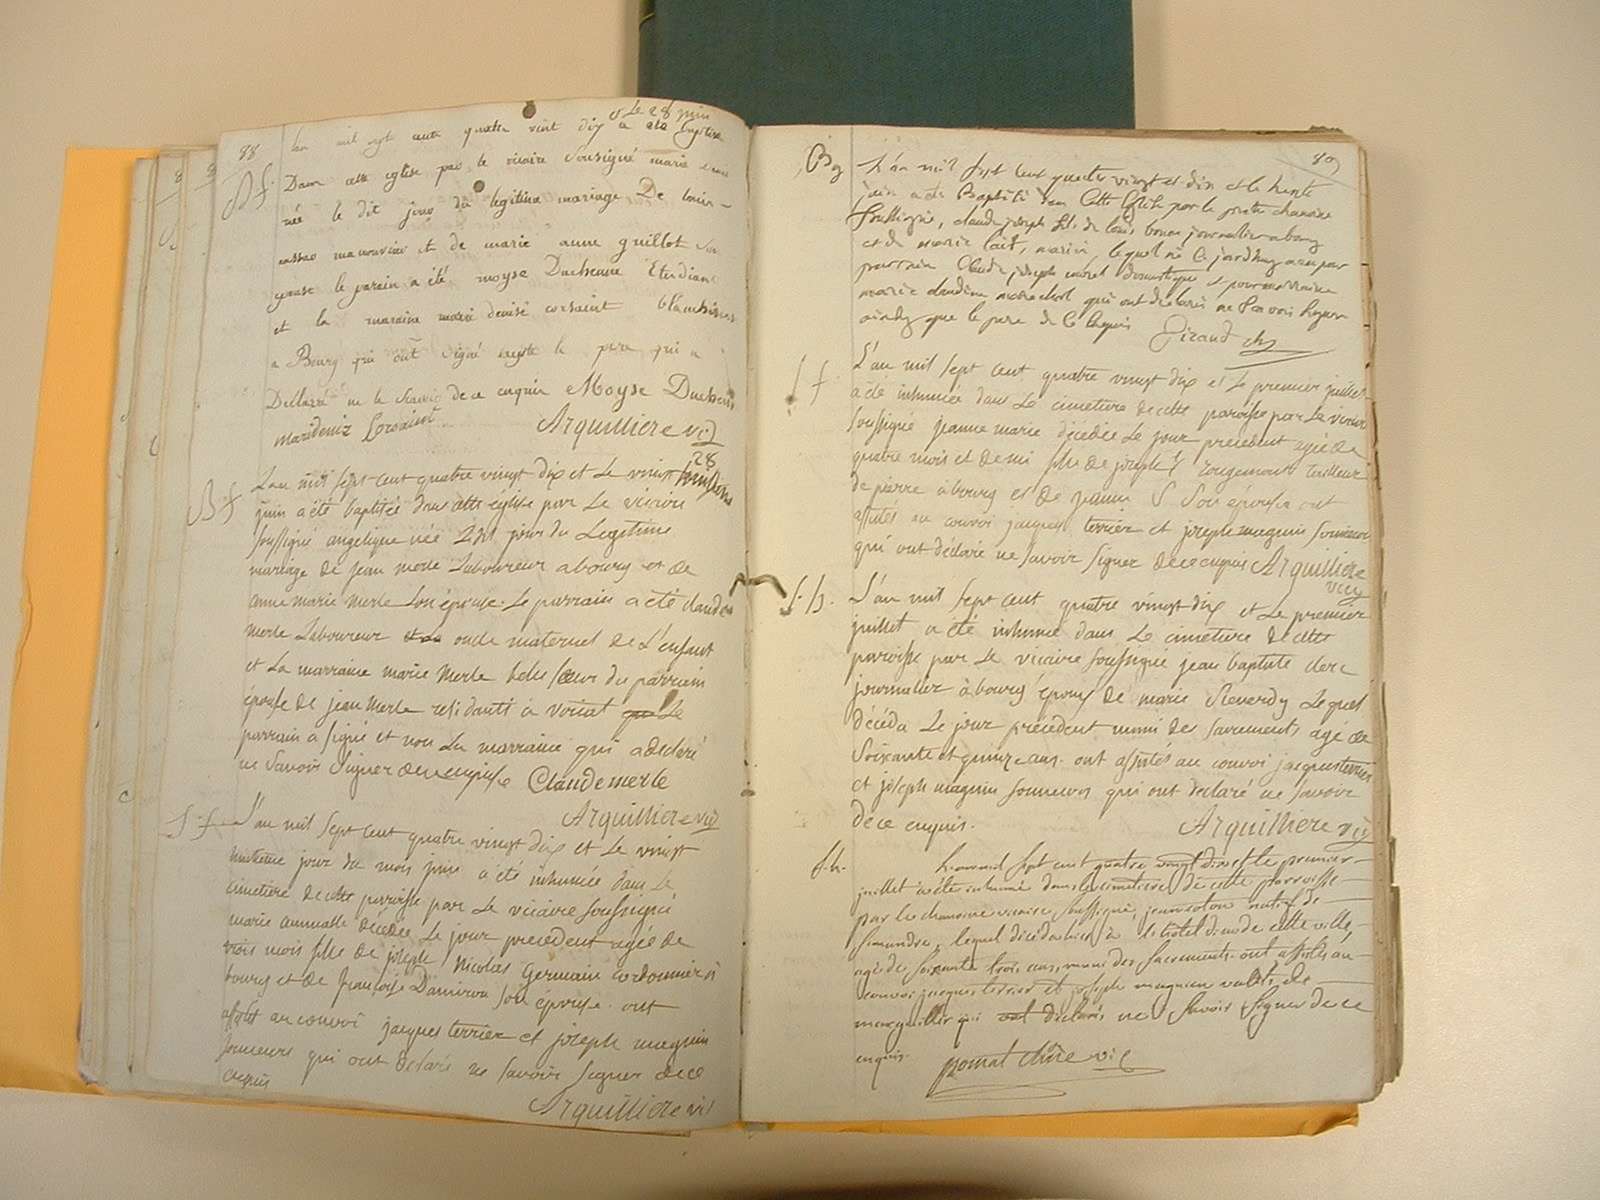 88
Le 28 juin
Lan mil sept cents quatre vint dix a été baptisé
B f.
Dans cette eglise par le vicaire sousigné marie
née le dit jour du legitime mariage De louis
manouvrier et de marie anne guillot son
epouse le parain a été moyse Duchenne Etudiant
et la maraine marie denise corsaint blanchisseuse
a Bourg qui ont signé excepté le pere qui a
Dellaré ne le scavoir de ce enquis Moyse Duchenne
maridenise Corsaint Arquilliere vic
28
B f
L'an mil sept cent quatre vingt dix et Le vingt huitieme
juin a été baptisée dans cette église par Le vicaire
soussigné angelique née Ledit jour du Legitime
mariage de jean merle Laboureur a bourg et de
anne marie merle son épouse. Le parrain a été claude
merle Laboureur oncle maternel de L'enfant
et La marraine marie merle belle sœur du parrain
épouse de jean merle residants a Le
parrain a signé et non La marraine qui a declaré
ne savoir signer de ce enquise Claude merle
Arquilliere vic
S. f.
L'an mil sept cent quatre vingt dix et Le vingt
huitieme jour du mois juin a été inhumée dans Le
cimetiere de cette paroisse par Le vicaire soussigné
marie décédée Le jour precedent agée de
trois mois fille de joseph Nicolas Germain cordonnier à
bourg et de françoise Damiron son épouse. ont
assisté au convoi jacques terrier et joseph magnin
sonneurs qui ont déclaré ne savoir signer de ce
enquis
Arquilliere vic
89
B g
L'an mil sept cent quatre vingt et dix et le trente
juin a été Baptisé dans Cette Eglise par le pretre chanoine
soussigné, claude joseph fils de louis journalier a bourg
et de marie mariés, lequel né aujourd'huy a eu par
parrain Claude joseph domestique et pour marraine
marie claudine marechal qui ont declaré ne scavoir signer
ainsy que le pere de ce Requis Giraud ch
S f.
L'an mil sept cent quatre vingt dix et Le premier juillet
a été inhumée dans Le cimetiere de cette paroisse par Le vicaire
soussigné jeanne marie décédée Le jour precedent agée de
quatre mois et demi fille de joseph rougemont tailleur
de pierre à bourg et de jeanne son épouse ont
assisté au convoi jacques terrier et joseph magnin sonneurs
qui ont déclaré ne savoir signer de ce enquis Arquilliere
vic
S. h.
L'an mil sept cent quatre vingt dix et Le premier
juillet a été inhumé dans Le cimetiere de cette
paroisse par Le vicaire soussigné jean baptiste clerc
journalier à bourg époux de marie Reverdy Lequel
décéda Le jour précédent muni des sacrements agé de
soixante et quinze ans. ont assistés au convoi jacques terrier
et joseph magnin sonneurs qui ont declaré ne savoir
de ce enquis.
Arquilliere vic
S. h.
L'an mil sept cent quatre vingt dix et le premier
juillet a été inhumé dans le cimetiere de cette parroisse
par le chanoine vicaire soussigné, jean natif de
simandre, lequel décéda hier à l'hotel dieu de cette ville,
agé de soixante trois ans, muni des sacrements. ont assistés au
convoi jacques terrier et joseph magnin valets de
marguillier qui ont declarés ne savoir signer de ce
enquis. vic